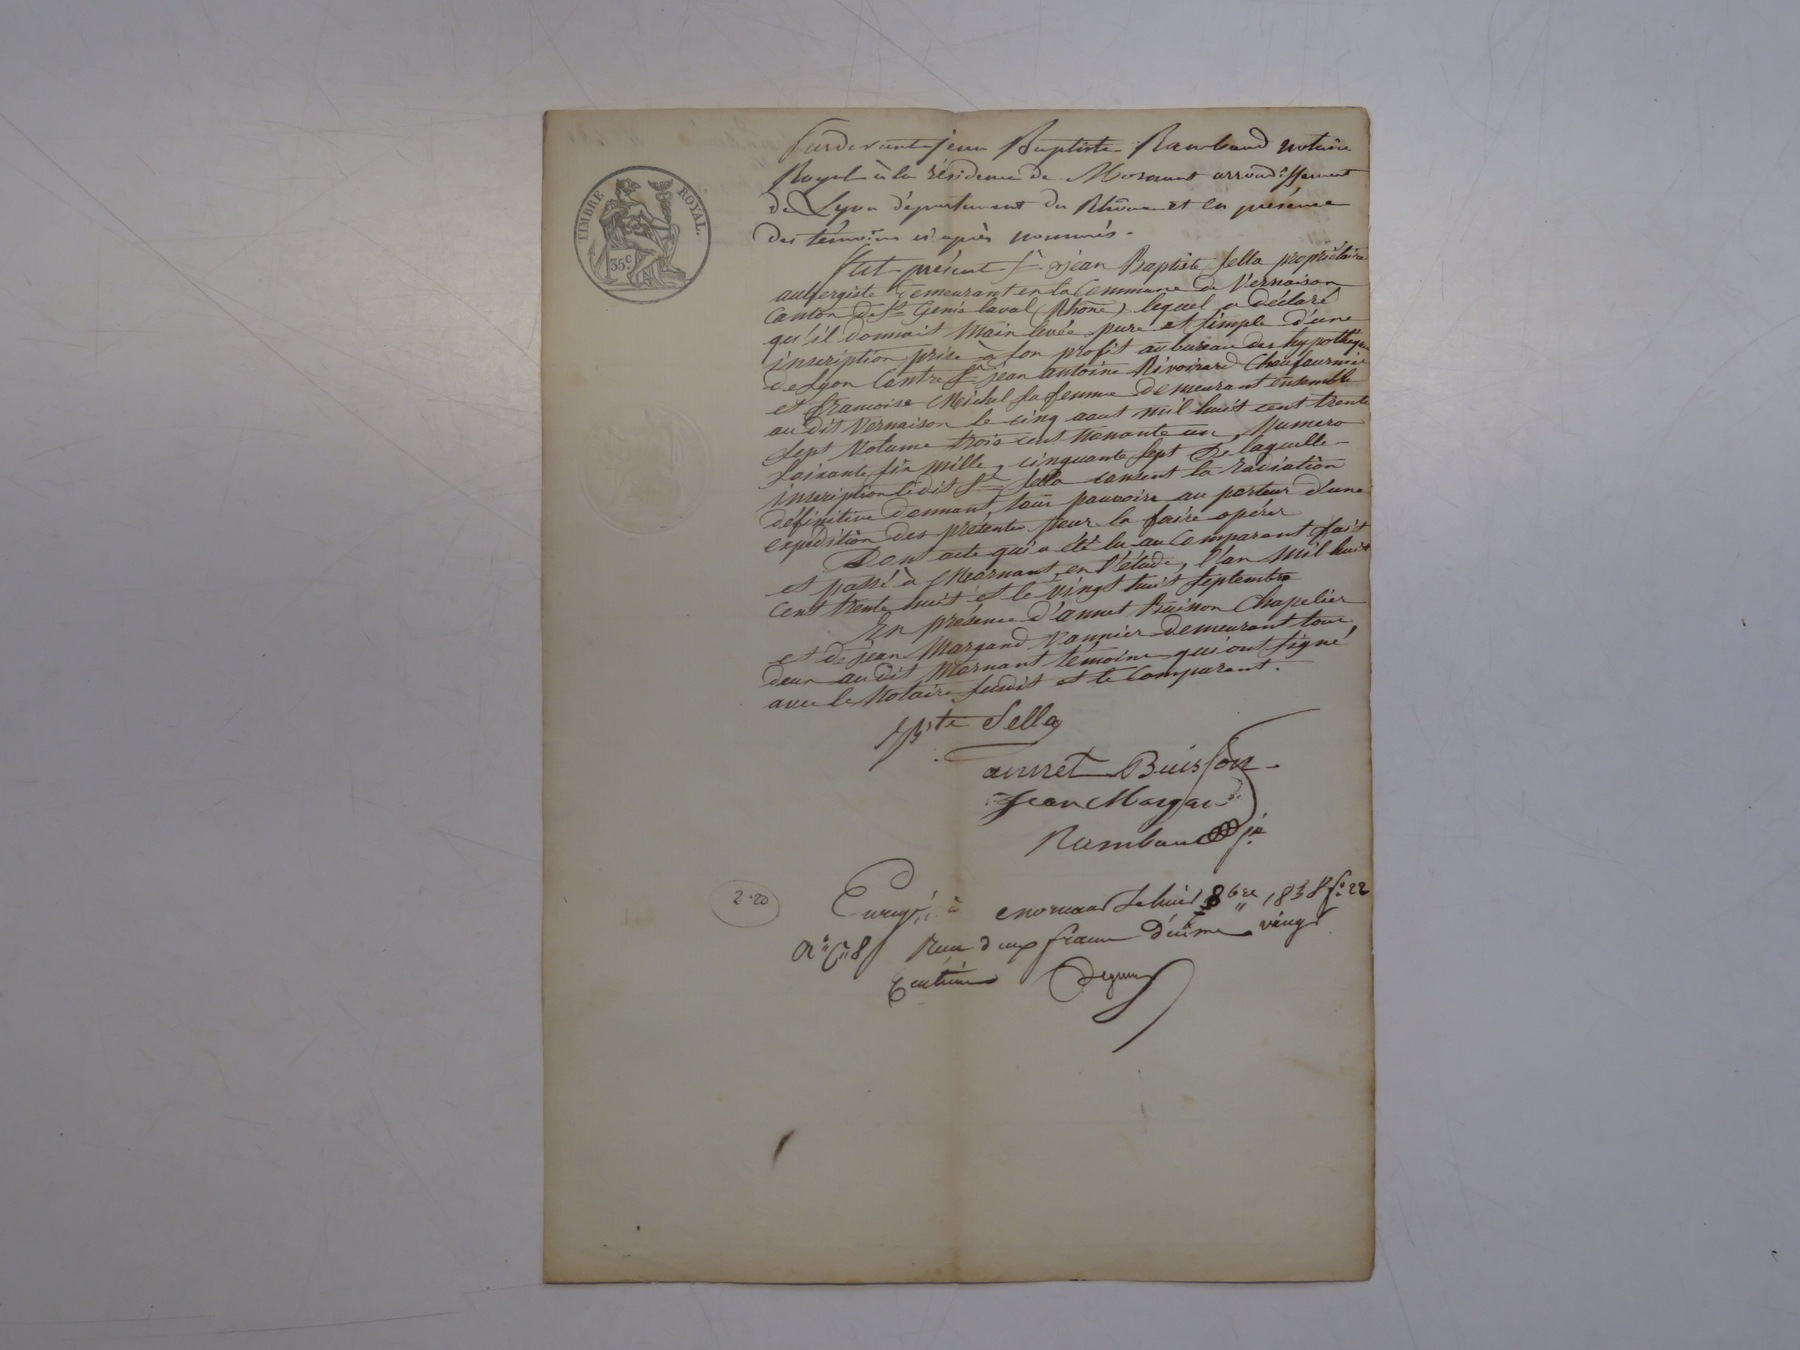 TIMBRE ROYAL.
35 c.
Pardevant jean Baptiste Rambaud notaire
Royal à la résidence de Mornant arrondissement
de Lyon département du Rhône et en présence
des témoins ci après nommés.
Fut présent Sr jean Baptiste Sella propriétaire
aubergiste demeurant en la Commune de Vernaison
Canton de St Genis laval (Rhône) lequel a déclaré
qu'il donnait Main levée pure et simple d'une
inscription prise à son profit au bureau des hypothèques
de Lyon Contre Sr jean antoine Rivoirard Chaufournier
et françoise Michel sa femme demeurant ensemble
au dit Vernaison le cinq aout mil huit cent trente
sept Volume trois cent nonante un, Numero
soixante six mille, cinquante sept De laquelle
inscription ledit Sr Sella consent la radiation
définitive donnant tout pouvoir au porteur d'une
expedition des présentes pour la faire opérer
Dont acte qui a été lu au Comparant fait
et passé à Mornant en l'étude, l'an Mil huit
cent trente huit et le vingt huit Septembre
En présence d'annet Buisson Chapelier
et de jean Margand Vannier demeurant tous
deux au dit Mornant témoins qui ont signé
avec le Notaire susdit et le Comparant.
Bte Sella
annet Buisson
Jean Margand
Rambaud
2.20
Enregé à mornant le huit 8bre 1838 fo 22
Ro Co 8 Reçu deux francs décime vingt
Centimes